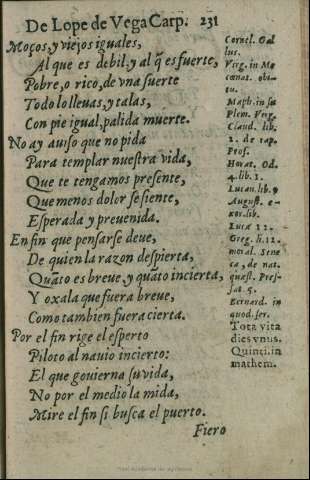 De Lope de Vega Carp. 231
Moços, y viejos iguales,
Al que es debil, y al q̃ es fuerte,
Pobre, o rico, de vna suerte
Todo lo lleuas, y talas,
Con pie igual, palida muerte.
No ay auiso que no pida
Para templar nuestra vida,
Que te tengamos presente,
Que menos dolor se siente,
Esperada y preuenida.
En fin que pensarse deue,
De quien la razon despierta,
Quãto es breue y quãto incierta,
Y oxala que fuera breue,
Como tambien fuera cierta.
Por el fin rige el esperto
Piloto al nauio incierto:
El que gouierna su vida,
No por el medio la mida,
Mire el fin si busca el puerto.
Fiero
Cornel. Gal
lus.
Virg. in Me
cœnat. obi-
tu.
Maph. in su
plem. Virg.
Claud. lib.
2. de rap.
Pros.
Horat. Od.
4. lib. 1.
Lucan. lib. 9
August. e-
xor. lib.
Lucæ 12.
Greg. li. 12.
moral. Sene
ca, de nat.
quæst. Pres-
sat 5.
Bernard. in
quod. ser.
Tota vita
dies vnus.
Quinti. in
mathem.